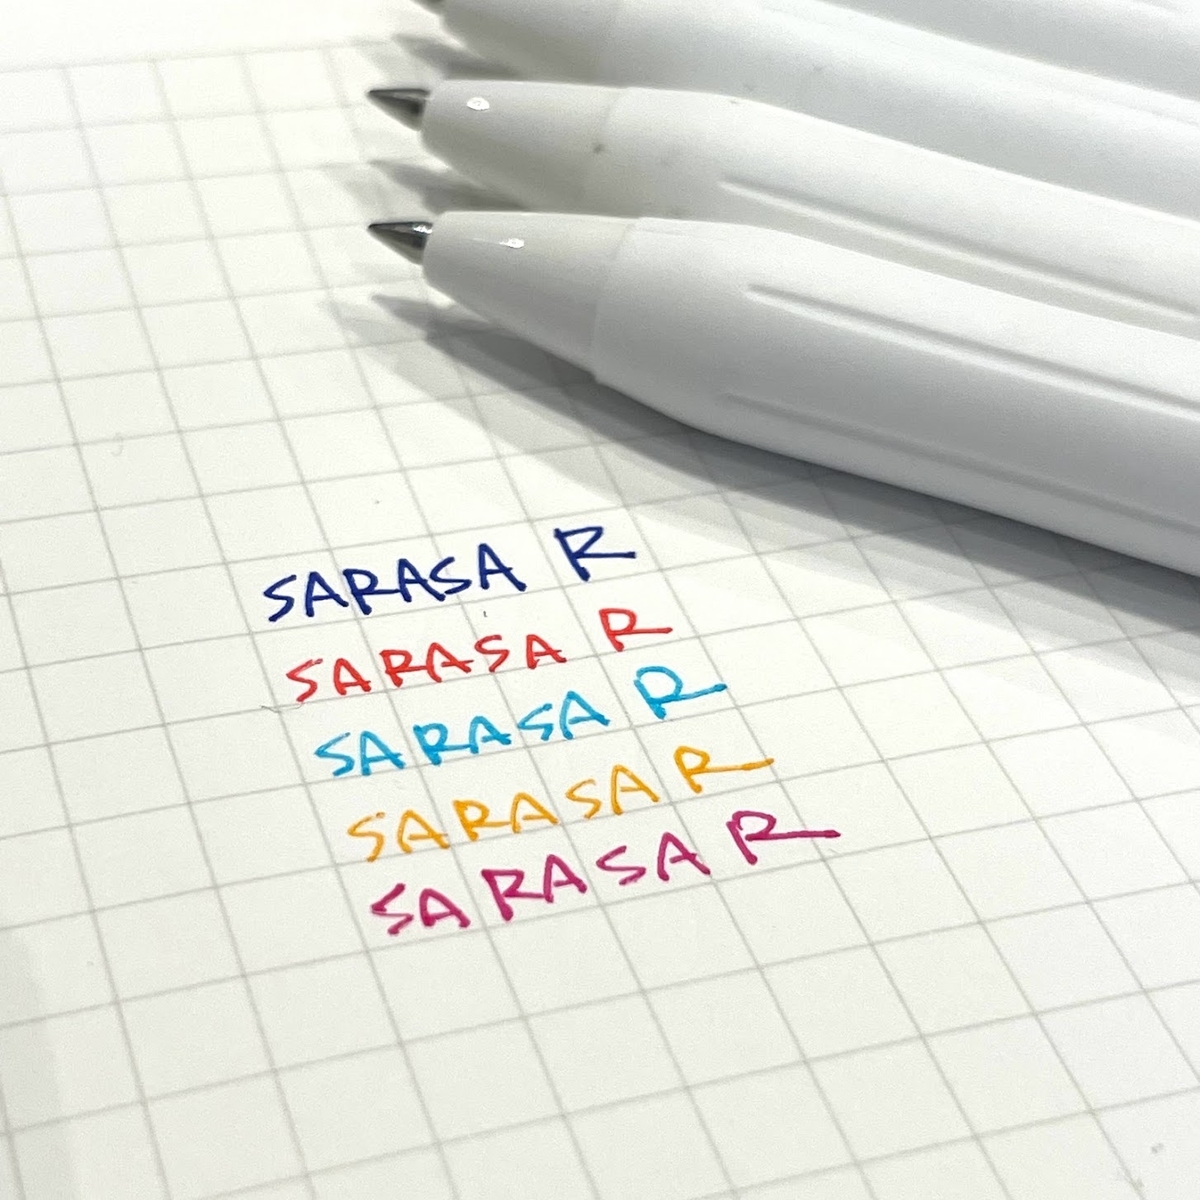 SARASA R
SARASA R
SARASA R
SARASA R
SARASA R